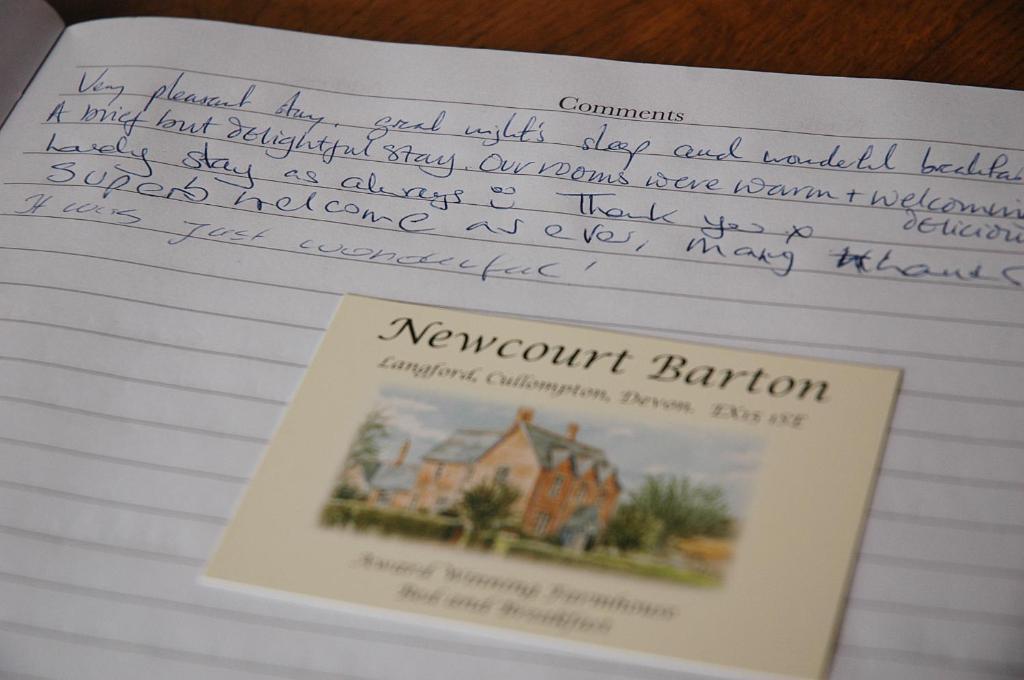 Comments
Very pleasant stay. great night's sleep and wonderful breakfast
A brief but delightful stay. Our rooms were warm + welcoming
delicious
Lovely stay as always ☺ Thank you x
Superb welcome as ever, many thanks
It was just wonderful!
Newcourt Barton
Langford, Cullompton, Devon. EX15 1SE
Award Winning Farmhouse
Bed and Breakfast